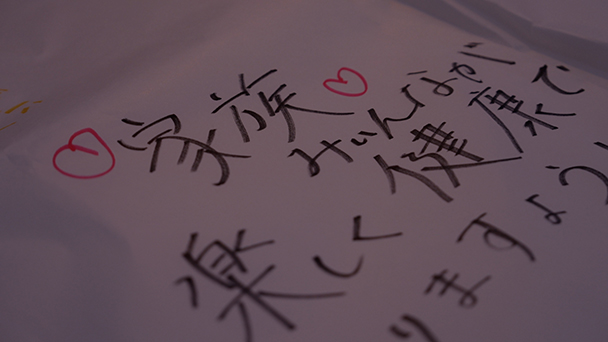 ♡家族♡
みんなが
健康で
楽しく
りますよう